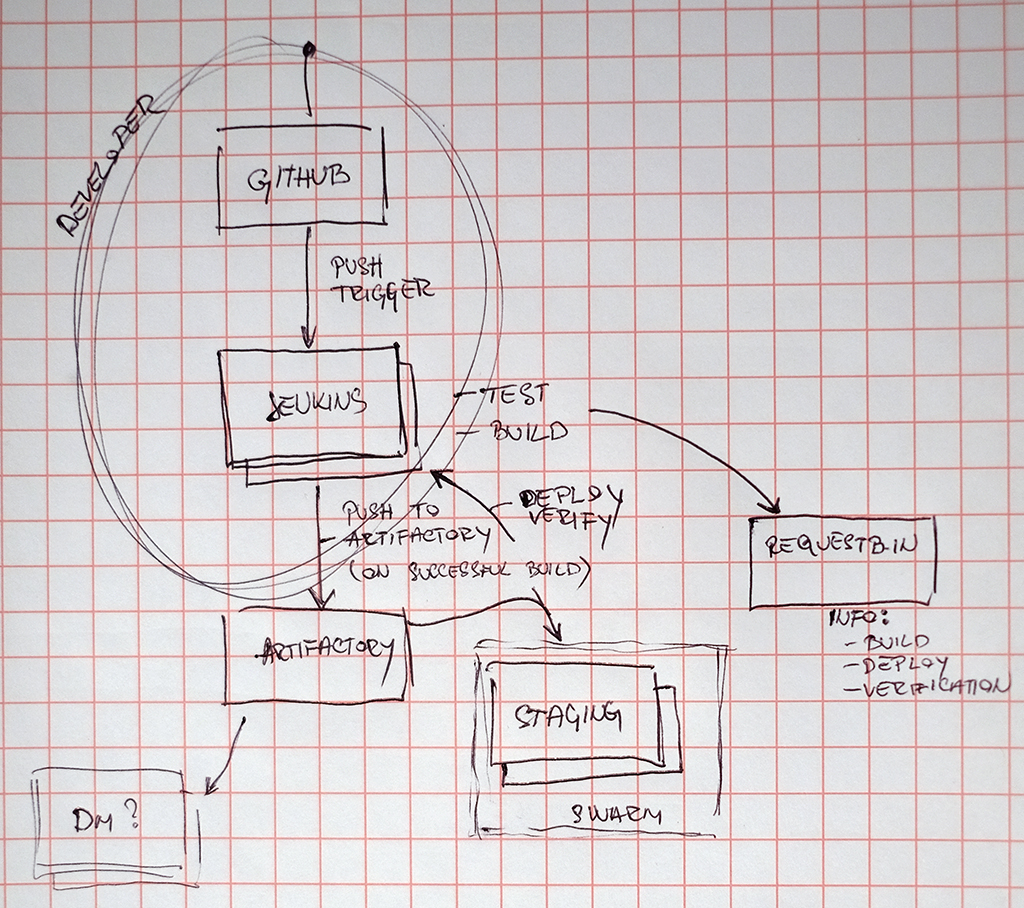 DEVELOPER
GITHUB
PUSH
TRIGGER
JENKINS
- TEST
- BUILD
- DEPLOY
VERIFY
- PUSH TO
ARTIFACTORY
(ON SUCCESSFUL BUILD)
REQUESTB.IN
INFO:
- BUILD
- DEPLOY
- VERIFICATION
ARTIFACTORY
STAGING
SWARM
DM?